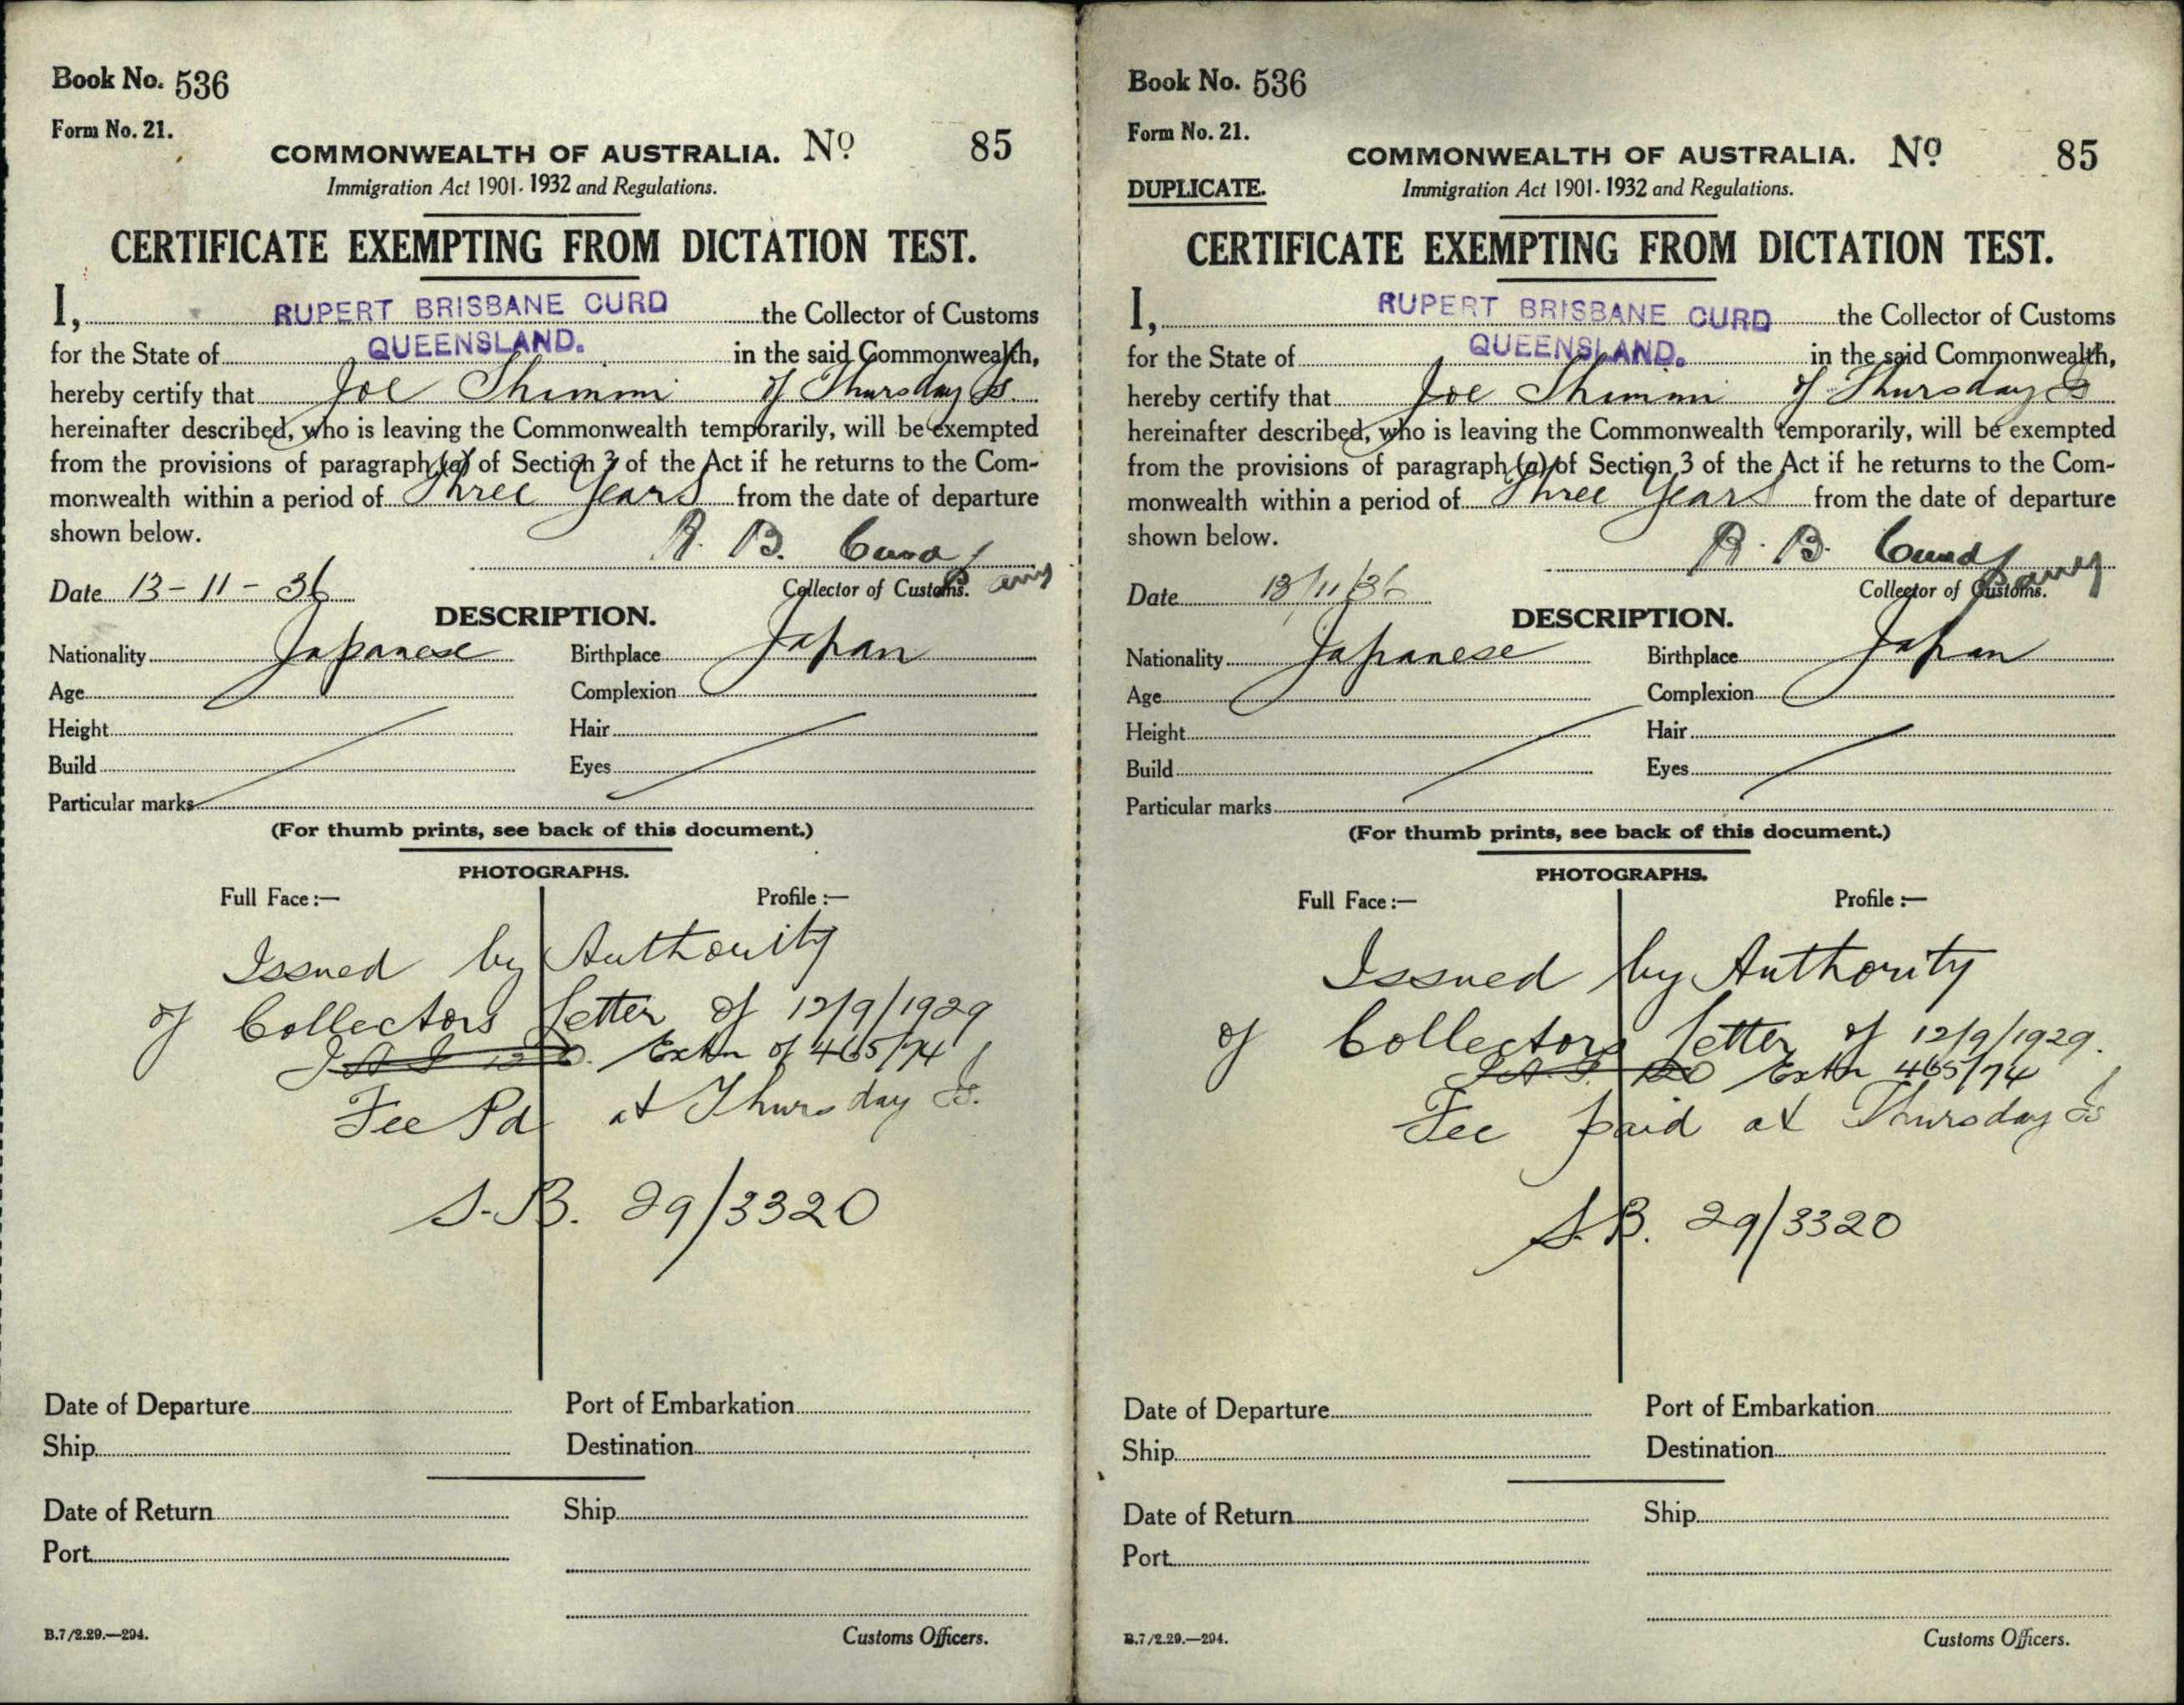 Book No. 536
Form No. 21.
COMMONWEALTH OF AUSTRALIA. No 85
Immigration Act 1901-1932 and Regulations.
CERTIFICATE EXEMPTING FROM DICTATION TEST.
I, RUPERT BRISBANE CURD the Collector of Customs
for the State of QUEENSLAND. in the said Commonwealth,
hereby certify that Joe Shimmi of Thursday Is.
hereinafter described, who is leaving the Commonwealth temporarily, will be exempted
from the provisions of paragraph (a) of Section 3 of the Act if he returns to the Com-
monwealth within a period of Three Years from the date of departure
shown below.
R. B. Curd
Date 13-11-36 Collector of Customs.
DESCRIPTION.
Nationality Japanese Birthplace Japan
Age Complexion
Height Hair
Build Eyes
Particular marks
(For thumb prints, see back of this document.)
PHOTOGRAPHS.
Full Face:— Profile:—
Issued by Authority
of Collectors letter of 12/9/1929
Extn of 465/74
Fee Pd at Thursday Is.
S.B. 29/3320
Date of Departure Port of Embarkation
Ship Destination
Date of Return Ship
Port
B.7/2.29.—294. Customs Officers.
Book No. 536
Form No. 21.
COMMONWEALTH OF AUSTRALIA. No 85
DUPLICATE. Immigration Act 1901-1932 and Regulations.
CERTIFICATE EXEMPTING FROM DICTATION TEST.
I, RUPERT BRISBANE CURD the Collector of Customs
for the State of QUEENSLAND. in the said Commonwealth,
hereby certify that Joe Shimmi of Thursday Is
hereinafter described, who is leaving the Commonwealth temporarily, will be exempted
from the provisions of paragraph (a) of Section 3 of the Act if he returns to the Com-
monwealth within a period of Three Years from the date of departure
shown below.
R. B. Curd
Date 13/11/36 Collector of Customs.
DESCRIPTION.
Nationality Japanese Birthplace Japan
Age Complexion
Height Hair
Build Eyes
Particular marks
(For thumb prints, see back of this document.)
PHOTOGRAPHS.
Full Face:— Profile:—
Issued by Authority
of Collectors letter of 12/9/1929.
Extn 465/74
Fee paid at Thursday Is
S.B. 29/3320
Date of Departure Port of Embarkation
Ship Destination
Date of Return Ship
Port
B.7/2.29.—294. Customs Officers.